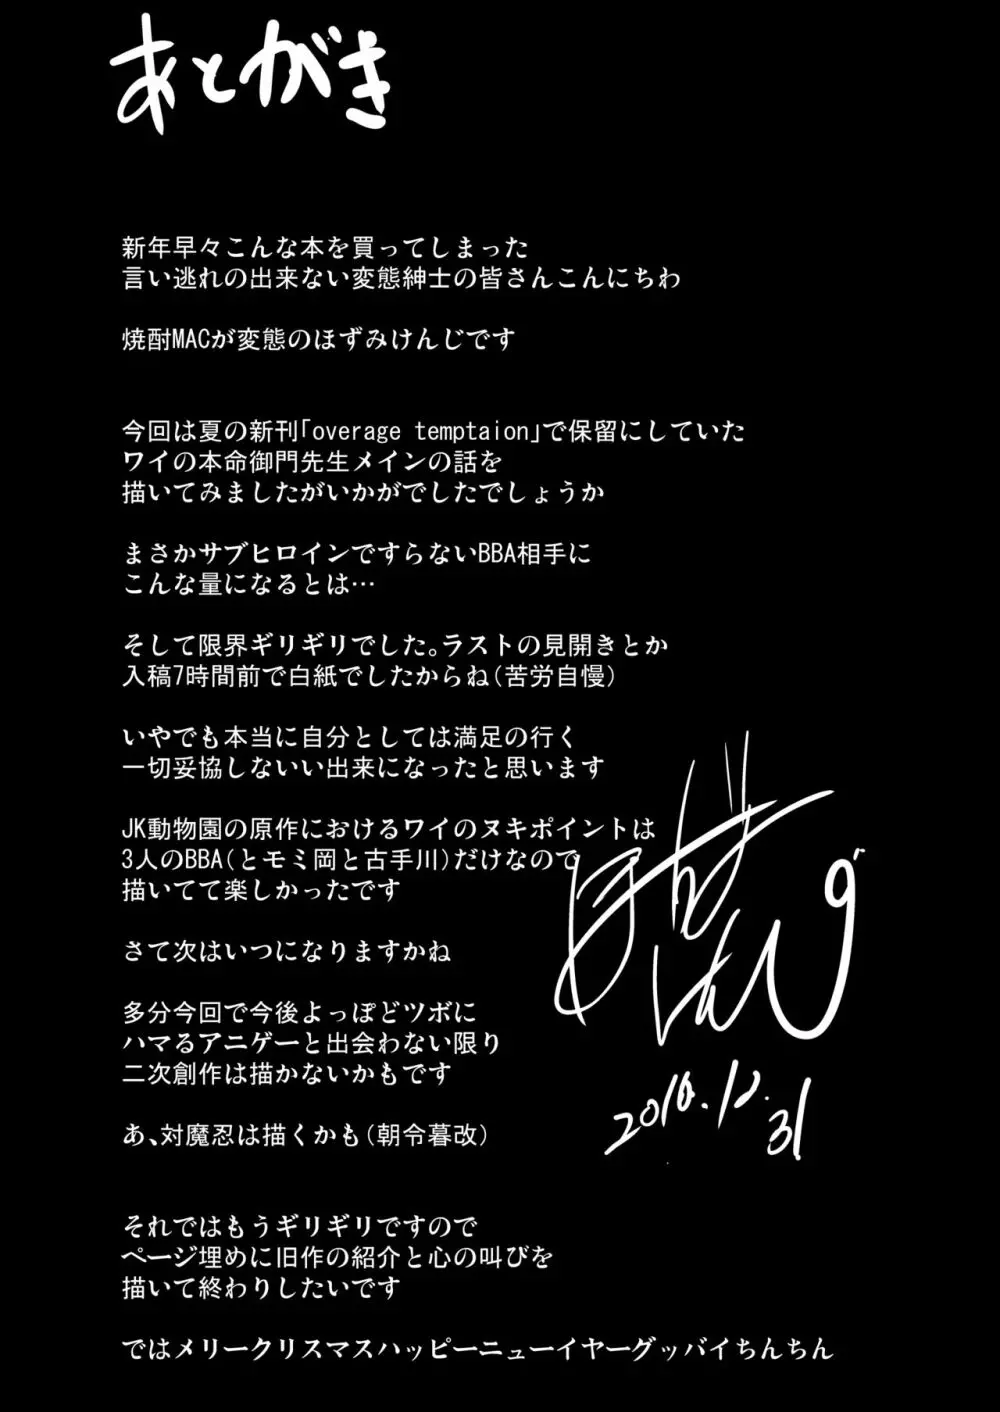 あとがき
新年早々こんな本を買ってしまった
言い逃れの出来ない変態紳士の皆さんこんにちわ
焼酎MACが変態のほずみけんじです
今回は夏の新刊｢overage temptaion｣で保留にしていた
ワイの本命御門先生メインの話を
描いてみましたがいかがでしたでしょうか
まさかサブヒロインですらないBBA相手に
こんな量になるとは…
そして限界ギリギリでした。ラストの見開きとか
入稿7時間前で白紙でしたからね(苦労自慢)
いやでも本当に自分としては満足の行く
一切妥協しないいい出来になったと思います
JK動物園の原作におけるワイのヌキポイントは
3人のBBA(とモミ岡と古手川)だけなので
描いてて楽しかったです
さて次はいつになりますかね
多分今回で今後よっぽどツボに
ハマるアニゲーと出会わない限り
二次創作は描かないかもです
あ、対魔忍は描くかも(朝令暮改)
それではもうギリギリですので
ページ埋めに旧作の紹介と心の叫びを
描いて終わりしたいです
ではメリークリスマスハッピーニューイヤーグッバイちんちん
2016.12.31